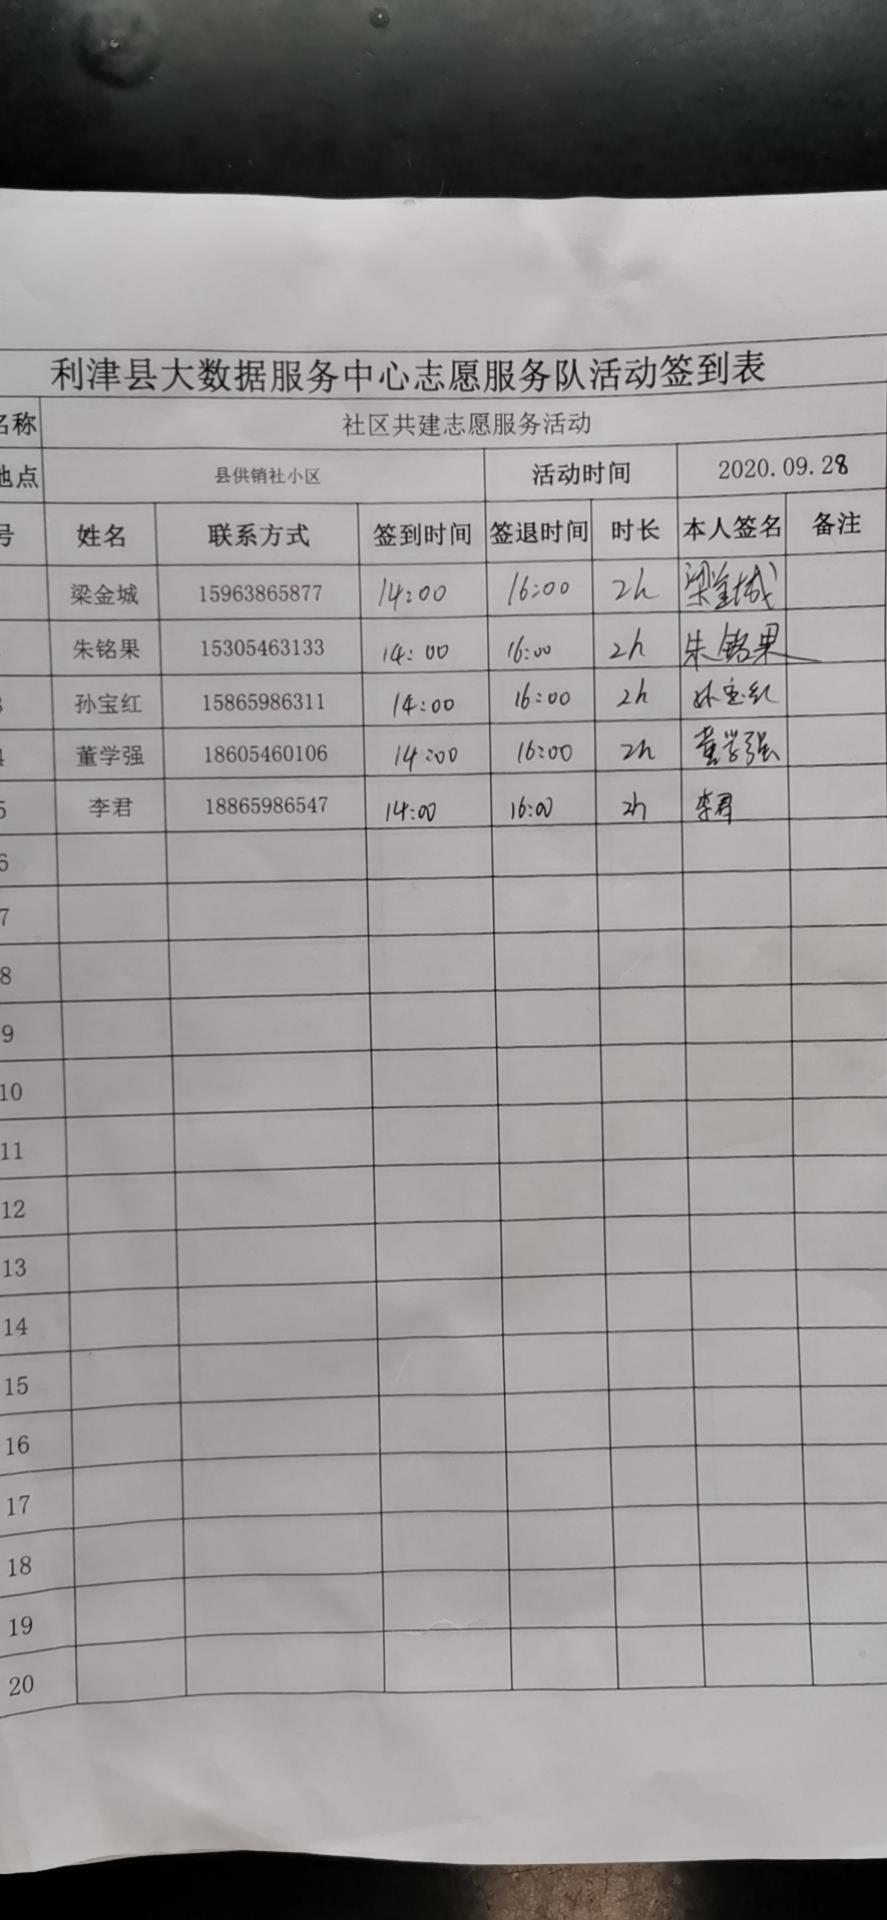 利津县大数据服务中心志愿服务队活动签到表
名称 社区共建志愿服务活动
地点 县供销社小区 活动时间 2020.09.28
号 姓名 联系方式 签到时间 签退时间 时长 本人签名 备注
梁金城 15963865877 14:00 16:00 2h 梁金城
朱铭果 15305463133 14:00 16:00 2h 朱铭果
3 孙宝红 15865986311 14:00 16:00 2h 孙宝红
4 董学强 18605460106 14:00 16:00 2h 董学强
5 李君 18865986547 14:00 16:00 2h 李君
6
7
8
9
10
11
12
13
14
15
16
17
18
19
20